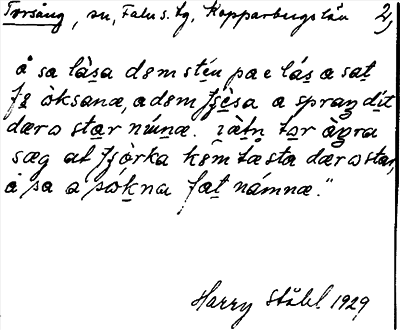 Torsång, sn, Falu s. tg, Kopparbergs län 2,
å sa làsa dem stén pae lás a sat
òksanæ, a dem a spran dit
dæro star núnæ. tor
sæg at kèm tæsta dæro star,
å sa a sókna fæt námnæ."
Harry Ståhl 1929